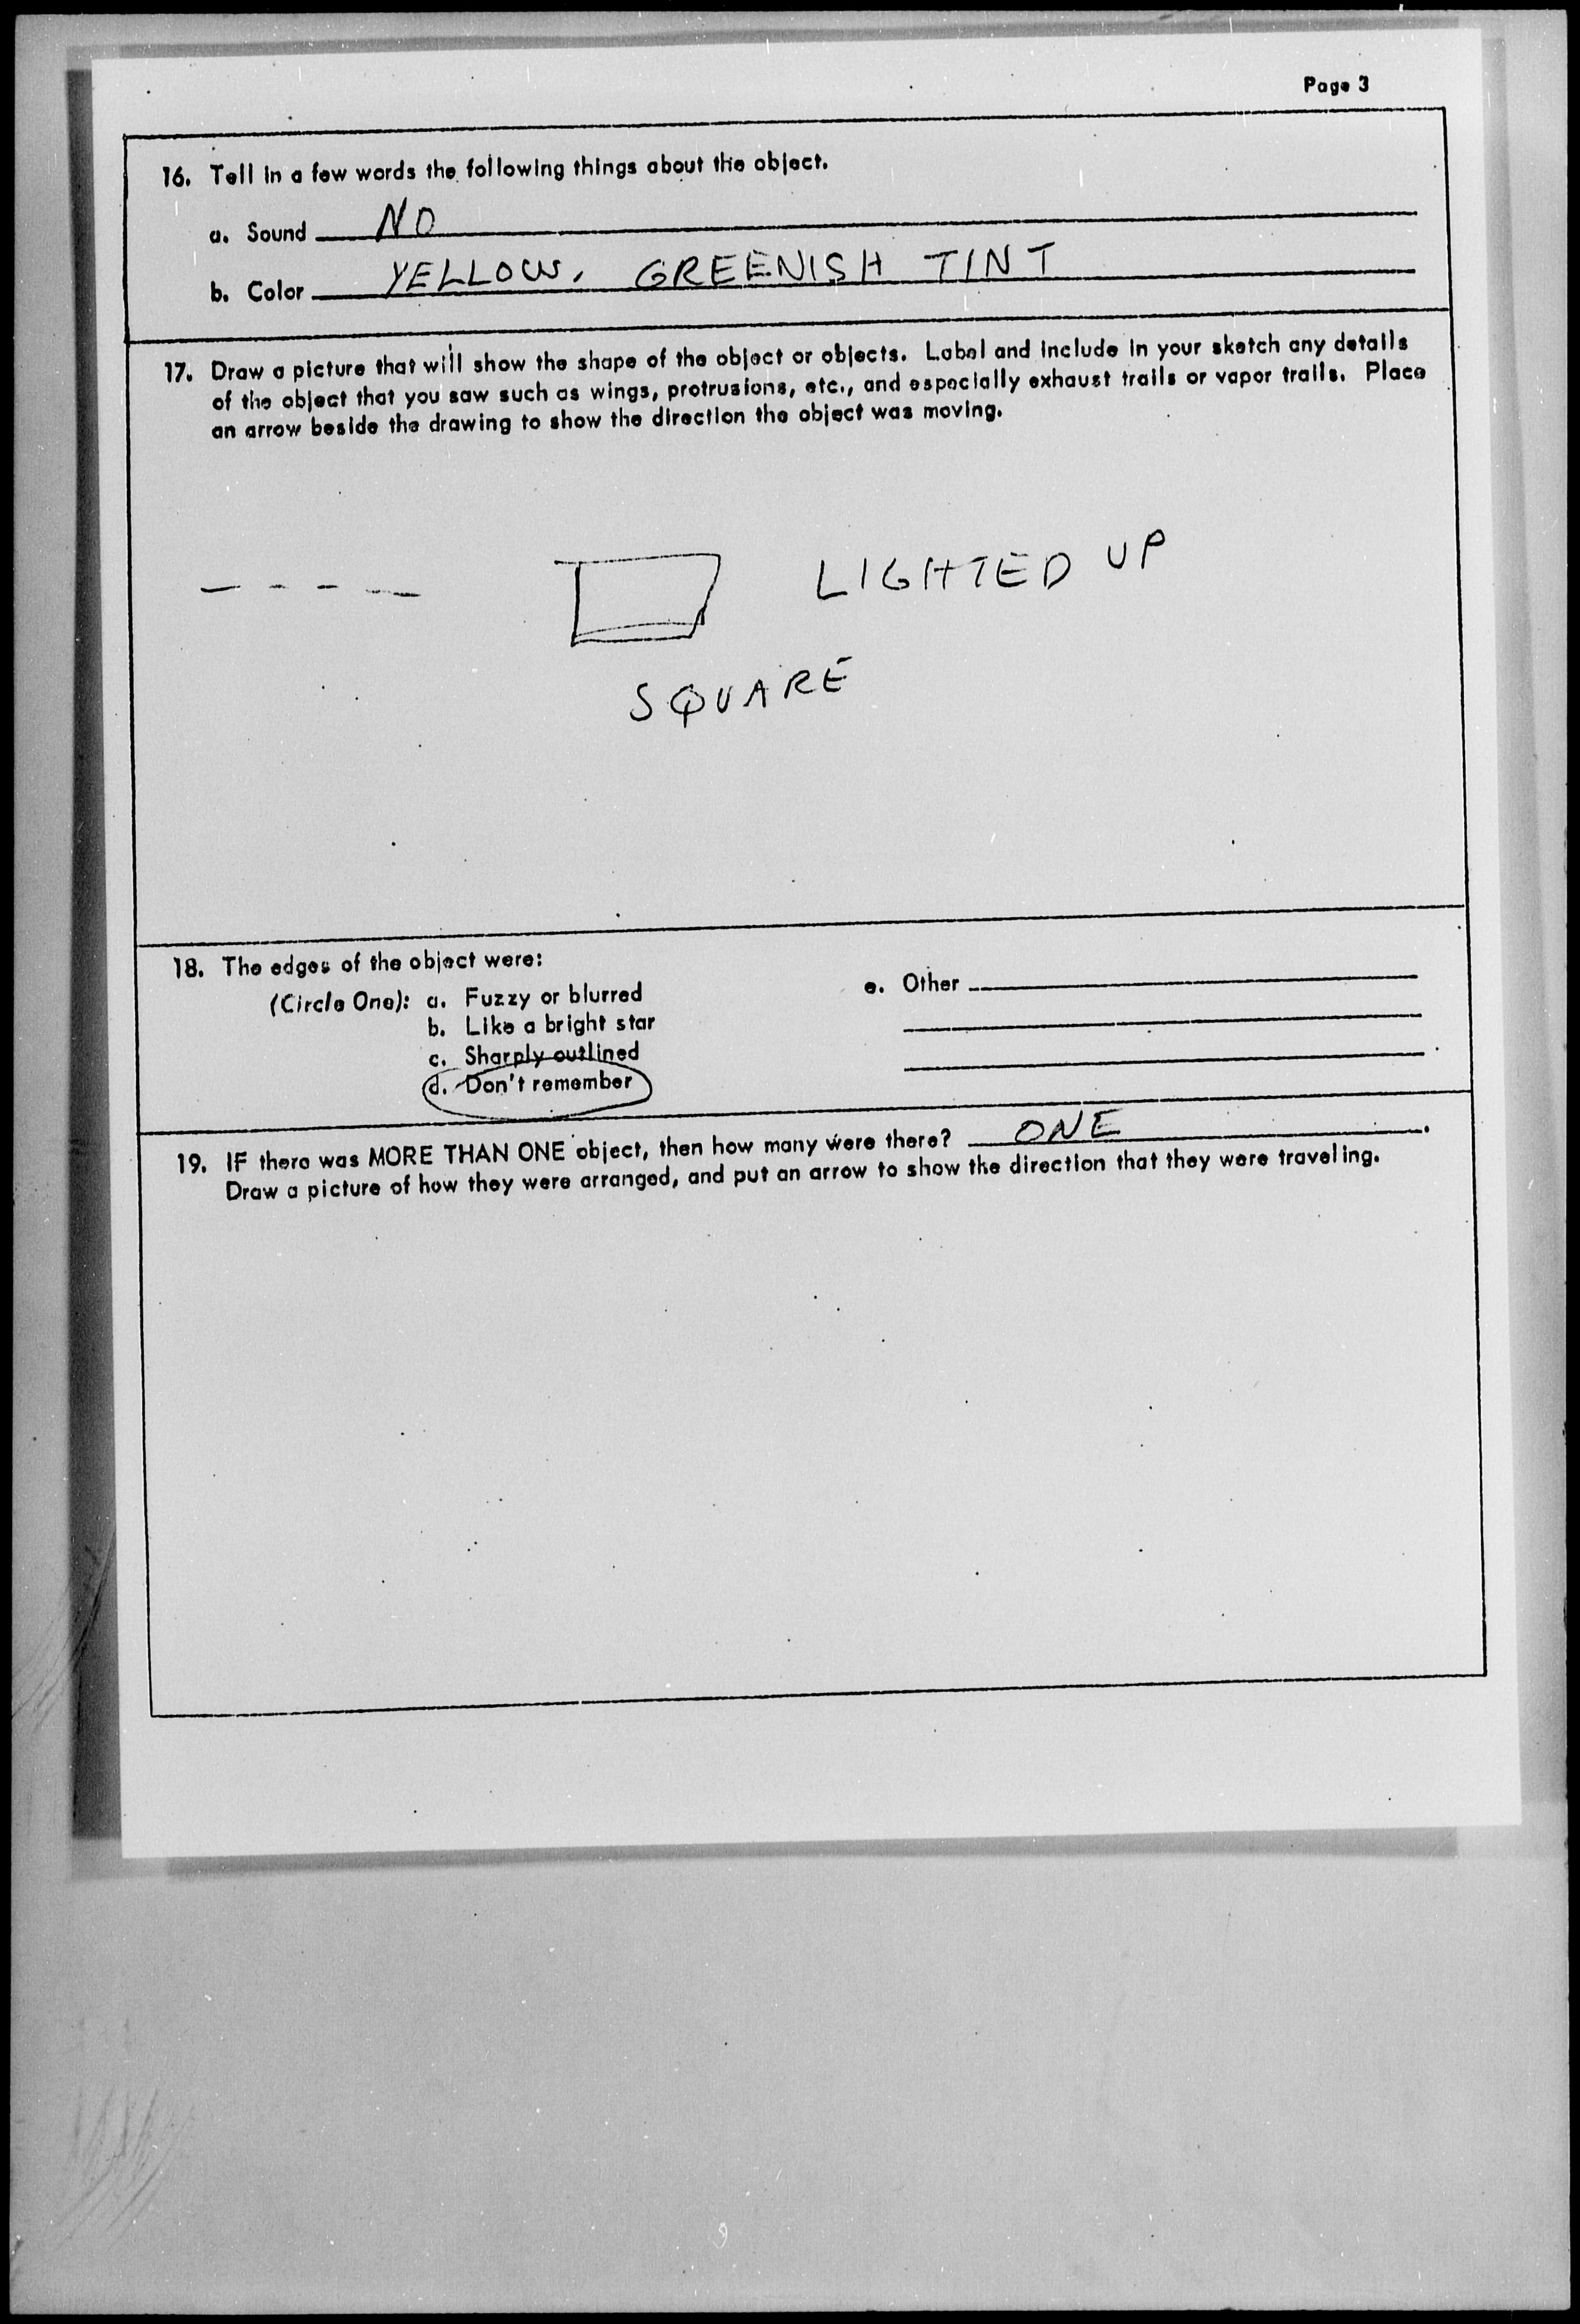 Page 3
16. Tell in a few words the following things about the object.
a. Sound NO
b. Color YELLOW, GREENISH TINT
17. Draw a picture that will show the shape of the object or objects. Label and include in your sketch any details
of the object that you saw such as wings, protrusions, etc., and especially exhaust trails or vapor trails. Place
an arrow beside the drawing to show the direction the object was moving.
LIGHTED UP
SQUARE
18. The edges of the object were:
(Circle One): a. Fuzzy or blurred
b. Like a bright star
c. Sharply outlined
d. Don't remember
e. Other
19. IF there was MORE THAN ONE object, then how many were there? ONE.
Draw a picture of how they were arranged, and put an arrow to show the direction that they were traveling.